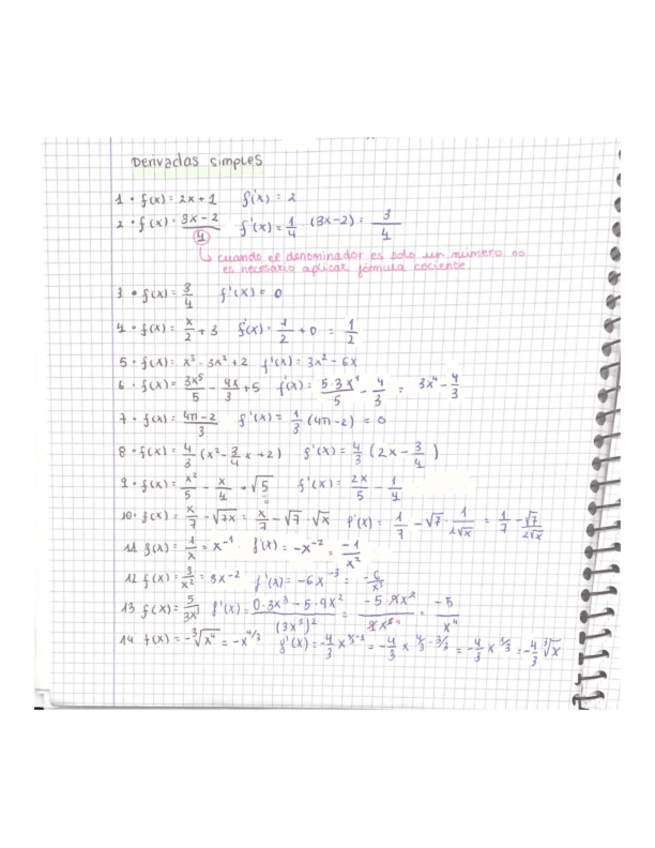 Derivadas simples
1 • f(x) = 2x + 1 f'(x) = 2
2 • f(x) = (3x - 2)/4 f'(x) = 1/4 (3x-2) = 3/4
cuando el denominador es solo un número no
es necesario aplicar fórmula cociente
3 • f(x) = 3/4 f'(x) = 0
4 • f(x) = x/2 + 3 f'(x) = 1/2 + 0 = 1/2
5 • f(x) = x³ - 3x² + 2 f'(x) = 3x² - 6x
6 • f(x) = 3x⁵/5 - 4x/3 + 5 f'(x) = 5·3x⁴/5 - 4/3 = 3x⁴ - 4/3
7 • f(x) = (4π - 2)/3 f'(x) = 1/3 (4π - 2) = 0
8 • f(x) = 4/3 (x² - 3/4 x + 2) f'(x) = 4/3 (2x - 3/4)
9 • f(x) = x²/5 - x/4 + √5 f'(x) = 2x/5 - 1/4
10 • f(x) = x/7 - √7x = x/7 - √7 · √x f'(x) = 1/7 - √7 · 1/2√x = 1/7 - √7/2√x
11 f(x) = 1/x = x⁻¹ f'(x) = -x⁻² = -1/x²
12 f(x) = 3/x² = 3x⁻² f'(x) = -6x⁻³ = -6/x³
13 f(x) = 5/3x³ f'(x) = (0·3x³ - 5·9x²)/(3x³)² = -5·9x²/9x⁶ ⁴ = -5/x⁴
14 f(x) = -∛x⁴ = -x^4/3 f'(x) = -4/3 x^4/3-1 = -4/3 x^4/3-3/3 = -4/3 x^1/3 = -4/3 ∛x